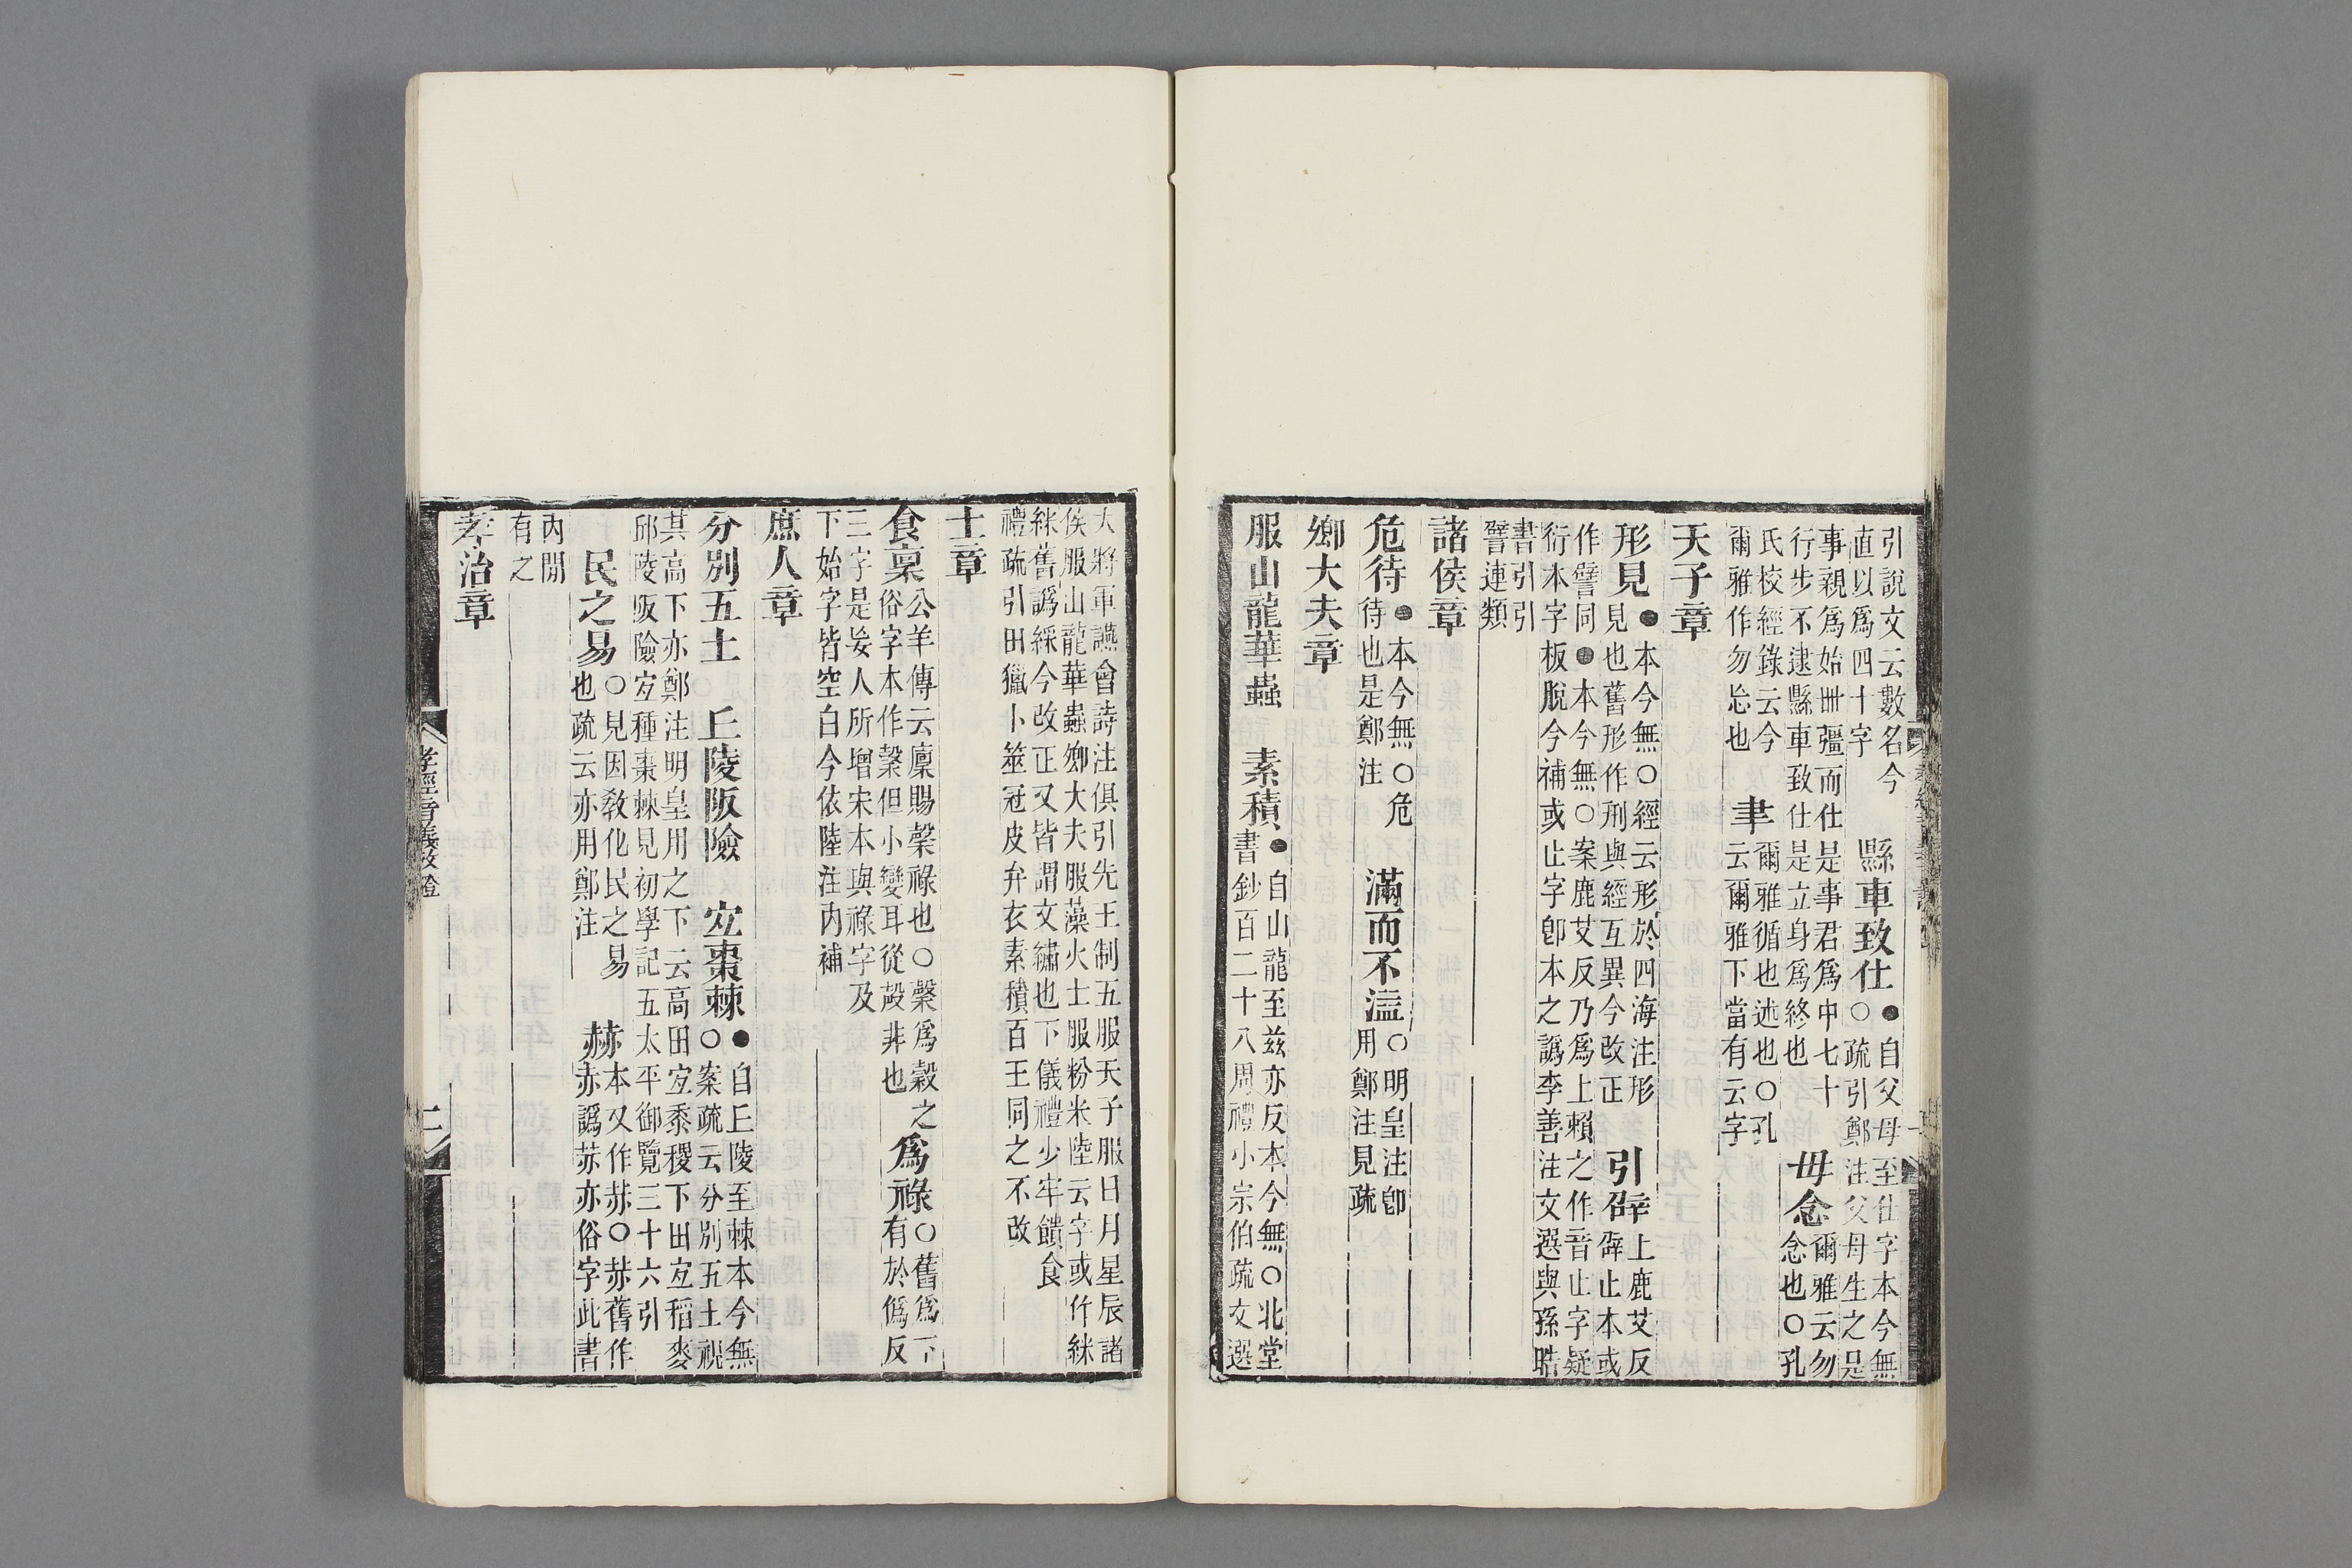 引說文云數名今
直以爲四十字
縣車致仕
●自父母至仕字本今無
○疏引鄭注父母生之是
事親爲始卌彊而仕是事君爲中七十
行步不逮縣車致仕是立身爲終也
毋念
爾雅云勿
念也○孔
氏校經錄云今
爾雅作勿忘也
聿
爾雅循也述也○孔
云爾雅下當有云字
天子章
形見
●本今無○經云形於四海注形
見也舊形作刑與經互異今改正
引辟
上鹿艾反
辟止本或
作譬同●本今無○案鹿艾反乃爲上賴之作音止字疑
衍本字板脫今補或止字卽本之譌李善注文選與孫皓
書引引
譬連類
諸侯章
危待
●本今無○危
待也是鄭注
滿而不溢
○明皇注卽
用鄭注見疏
鄉大夫章
服山龍華蟲
素積
●自山龍至兹亦反本今無○北堂
書鈔百二十八周禮小宗伯疏文選
大將軍讌會詩注俱引先王制五服天子服日月星辰諸
侯服山龍華蟲鄉大夫服藻火士服粉米陸云字或作絑
絑舊譌綵今改正又皆謂文繡也下儀禮少牢饋食
禮疏引田獵卜筮冠皮弁衣素積百王同之不改
士章
食稟
公羊傳云廩賜榖祿也○榖爲穀之
俗字本作榖但小變耳從殼非也
爲祿
○舊爲下
有於僞反
三字是妄人所增宋本與祿字及
下始字皆空白今依陸注內補
庶人章
分別五土
丘陵阪險
宐棗棘
●自丘陵至棘本今無
○案疏云分別五土視
其高下亦鄭注明皇用之下云高田宐黍稷下田宐稻麥
邱陵阪險宐種棗棘見初學記五太平御覽三十六引
民之易
○見因敎化民之易
也疏云亦用鄭注
赫
本又作赫○赫舊作
赤譌赤亦俗字此書
內閒
有之
孝治章
孝經音義攷證
二